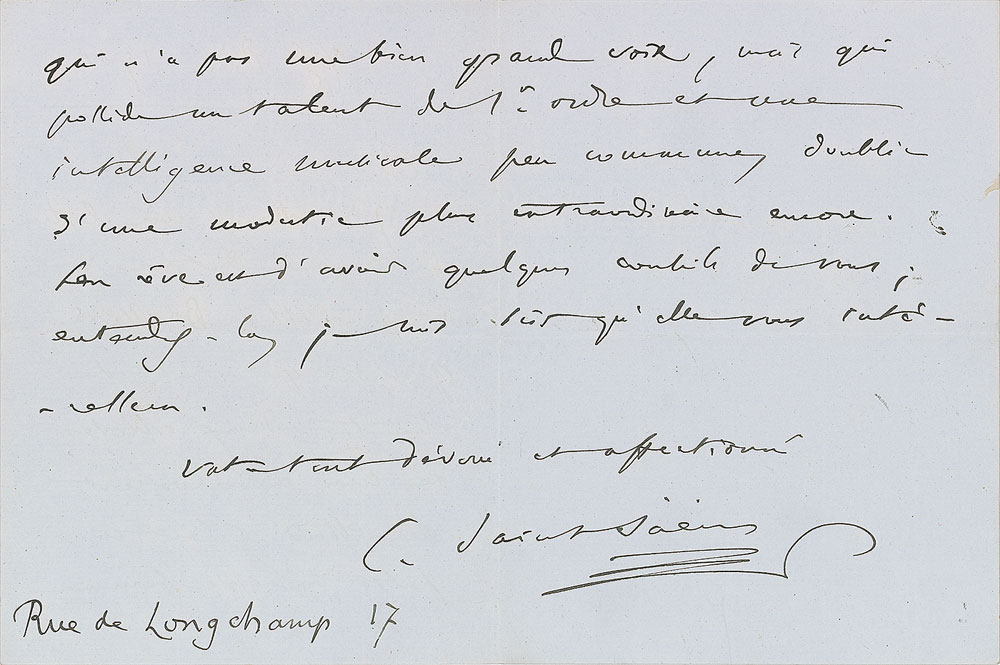 qui n'a pas une bien grande voix, mais qui
possède un talent de 1er ordre et une
intelligence musicale peu commune, doublée
d'une modestie plus extraordinaire encore.
Son rêve est d'avoir quelques conseils de vous ;
entendez-la, je suis sûr qu'elle vous inté-
-ressera.
Votre tout dévoué et affectionné
C. Saint-Saëns
Rue de Longchamp 17